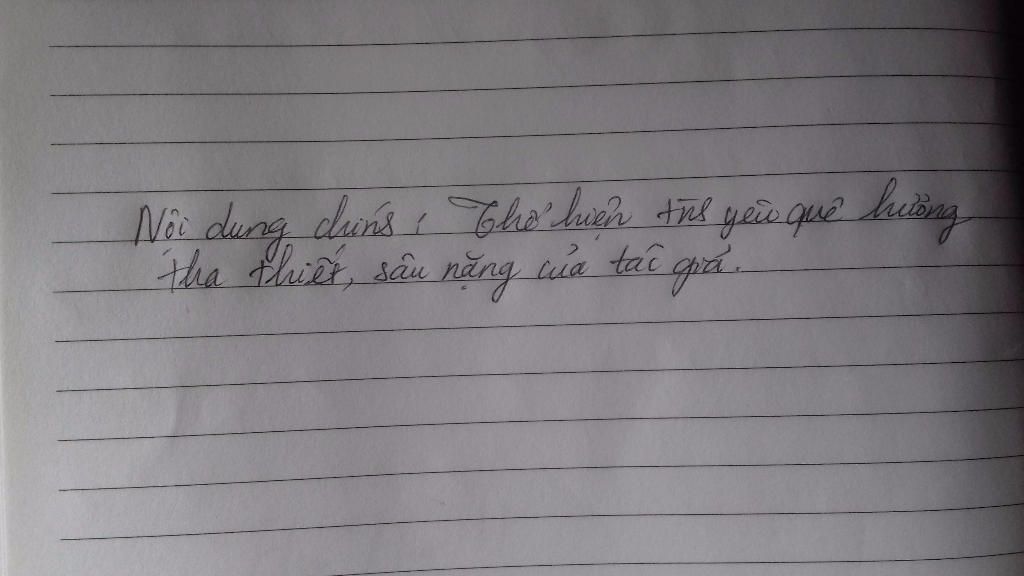 Nội dung chính: Thể hiện tình yêu quê hương
tha thiết, sâu nặng của tác giả.